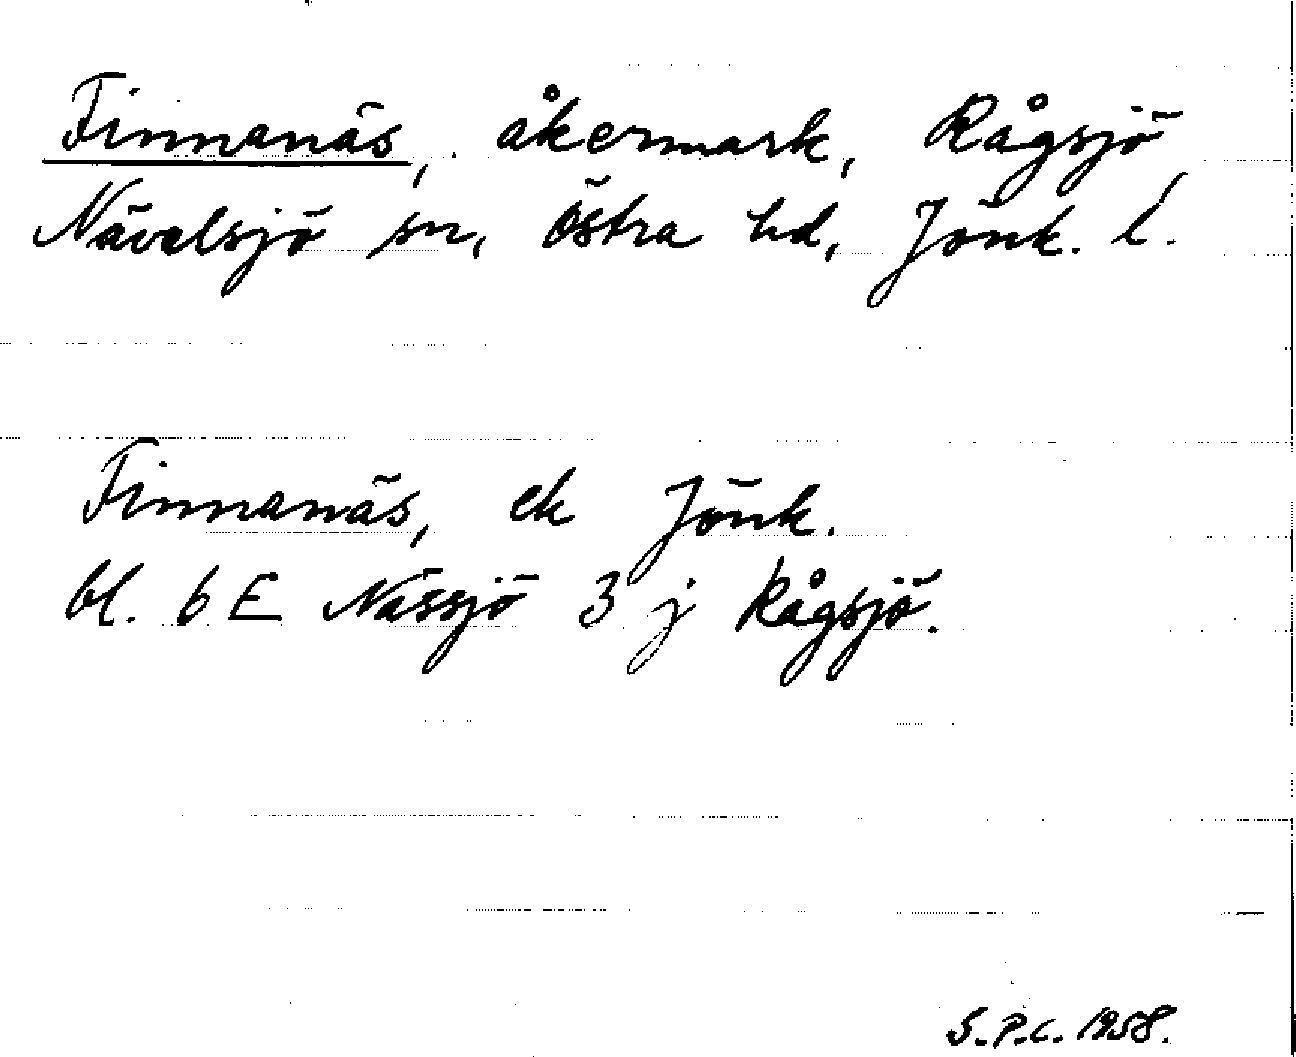 Finnanäs, åkermark, Rågsjö
Nävelsjö sn, Östra hd, Jönk. l.
Finnanäs, ek Jönk.
bl. 6 E Nässjö 3 j Rågsjö.
S.P.C. 1958.